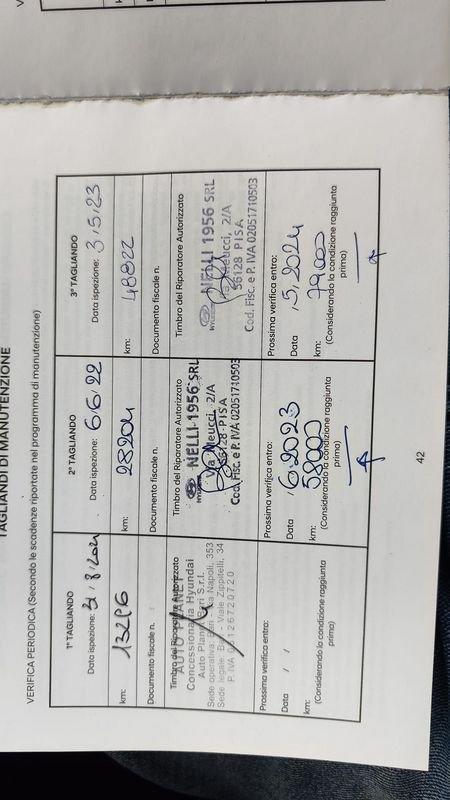 TAGLIANDI DI MANUTENZIONE
VERIFICA PERIODICA (Secondo la scadenze riportate nel programma di manutenzione)
1° TAGLIANDO
Data ispezione:
km: 13296
Documento fiscale n.
Timbro del Riparatore Autorizzato
Concessionaria Hyundai
Prossima verifica entro:
Data / /
km:
(Considerando la condizione raggiunta
prima)
2° TAGLIANDO
Data ispezione: 6/6/22
km: 28204
Documento fiscale n.
Timbro del Riparatore Autorizzato
NELLI 1956 SRL
Via Meucci, 2/A
56128 - PISA
Cod. Fisc. e P. IVA 02051710503
Prossima verifica entro:
Data / 6/2023
km: 58000
(Considerando la condizione raggiunta
prima)
3° TAGLIANDO
Data ispezione: 3/5/23
km: 48822
Documento fiscale n.
Timbro del Riparatore Autorizzato
NELLI 1956 SRL
Via Meucci, 2/A
56128 - PISA
Cod. Fisc. e P. IVA 02051710503
Prossima verifica entro:
Data / 5/2024
km: 79000
(Considerando la condizione raggiunta
prima)
42